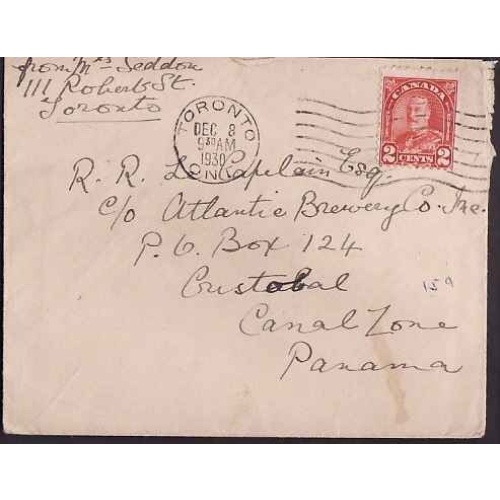 from Mrs Seddon
111 Robert St.
Toronto
TORONTO
DEC 8
9 30 AM
1930
ONT.
CANADA
2 CENTS 2
R. R. Le Capelain Esq.
c/o Atlantic Brewery Co. Inc.
P. O. Box 124
Cristobal
Canal Zone
Panama